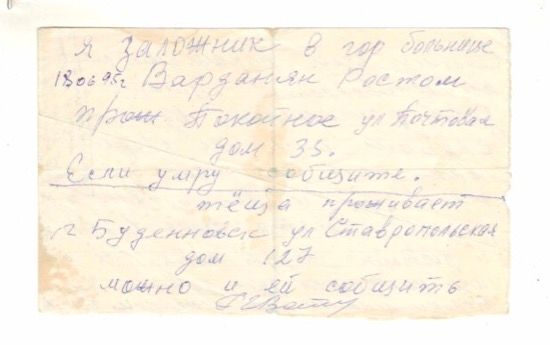 Я заложник в гор больнице
18 06 95г Варданян Ростом
прож Покойное ул Почтовая
дом 35.
Если умру собщите.
тёща проживает
г Буденновск ул Ставропольская
дом 127
можно и ей собщить